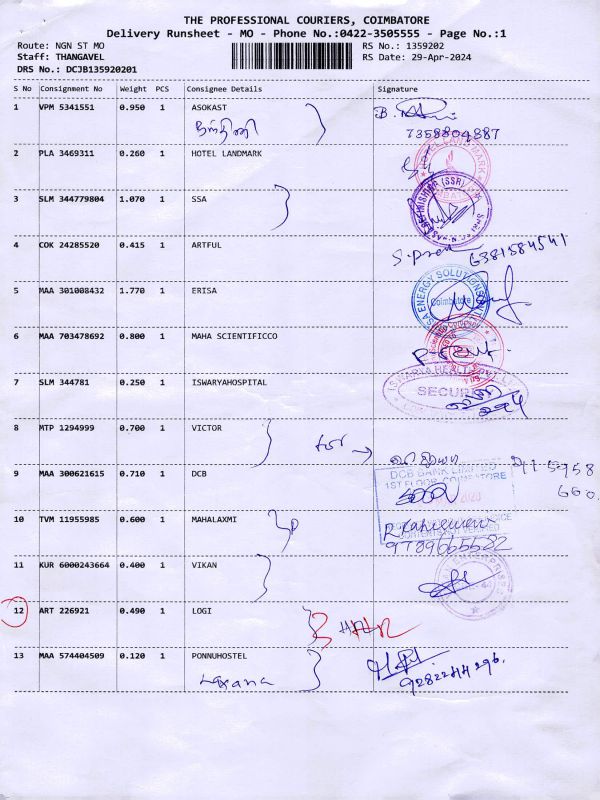 THE PROFESSIONAL COURIERS, COIMBATORE
Delivery Runsheet - MO - Phone No.:0422-3505555 - Page No.:1
Route: NGN ST MO
RS No.: 1359202
Staff: THANGAVEL
RS Date: 29-Apr-2024
DRS No.: DCJB135920201
S No Consignment No Weight PCS Consignee Details Signature
1 VPM 5341551 0.950 1 ASOKAST
நந்தினி
7358804887
2 PLA 3469311 0.260 1 HOTEL LANDMARK
HOTEL LANDMARK
3 SLM 344779804 1.070 1 SSA
4 COK 24285520 0.415 1 ARTFUL
6381584541
5 MAA 301008432 1.770 1 ERISA
SA ENERGY SOLUTIONS
Coimbatore
6 MAA 703478692 0.800 1 MAHA SCIENTIFICCO
7 SLM 344781 0.250 1 ISWARYAHOSPITAL
8 MTP 1294999 0.700 1 VICTOR
9 MAA 300621615 0.710 1 DCB
DCB BANK LIMITED
1ST FLOOR, COIMBATORE
10 TVM 11955985 0.600 1 MAHALAXMI
9789665582
11 KUR 6000243664 0.400 1 VIKAN
12 ART 226921 0.490 1 LOGI
13 MAA 574404509 0.120 1 PONNUHOSTEL
9282244296.